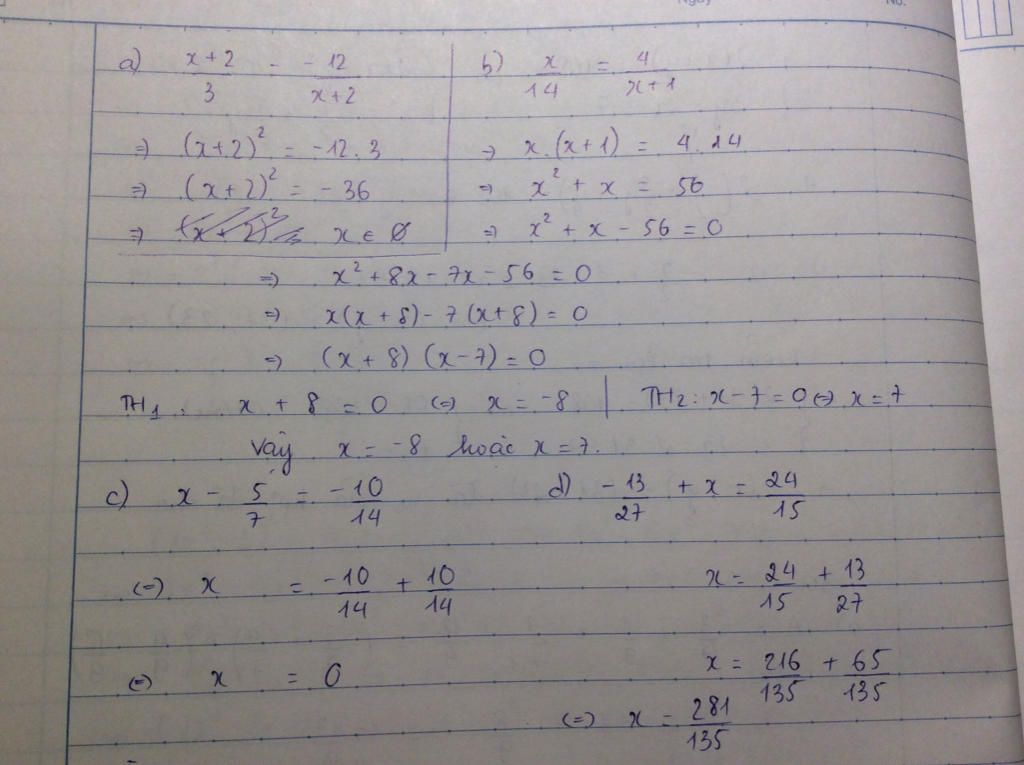 Ngày
No.
a) \frac{x+2}{3} = -\frac{12}{x+2}
=> (x+2)^2 = -12.3
=> (x+2)^2 = -36
=> x ∈ Ø
b) \frac{x}{14} = \frac{4}{x+1}
=> x.(x+1) = 4.14
=> x^2 + x = 56
=> x^2 + x - 56 = 0
=> x^2 + 8x - 7x - 56 = 0
=> x(x+8) - 7(x+8) = 0
=> (x+8)(x-7) = 0
TH1: x + 8 = 0 <=> x = -8 | TH2: x - 7 = 0 <=> x = 7
Vậy x = -8 hoặc x = 7.
c) x - \frac{5}{7} = \frac{-10}{14}
<=> x = \frac{-10}{14} + \frac{10}{14}
<=> x = 0
d) -\frac{13}{27} + x = \frac{24}{15}
x = \frac{24}{15} + \frac{13}{27}
x = \frac{216}{135} + \frac{65}{135}
<=> x = \frac{281}{135}